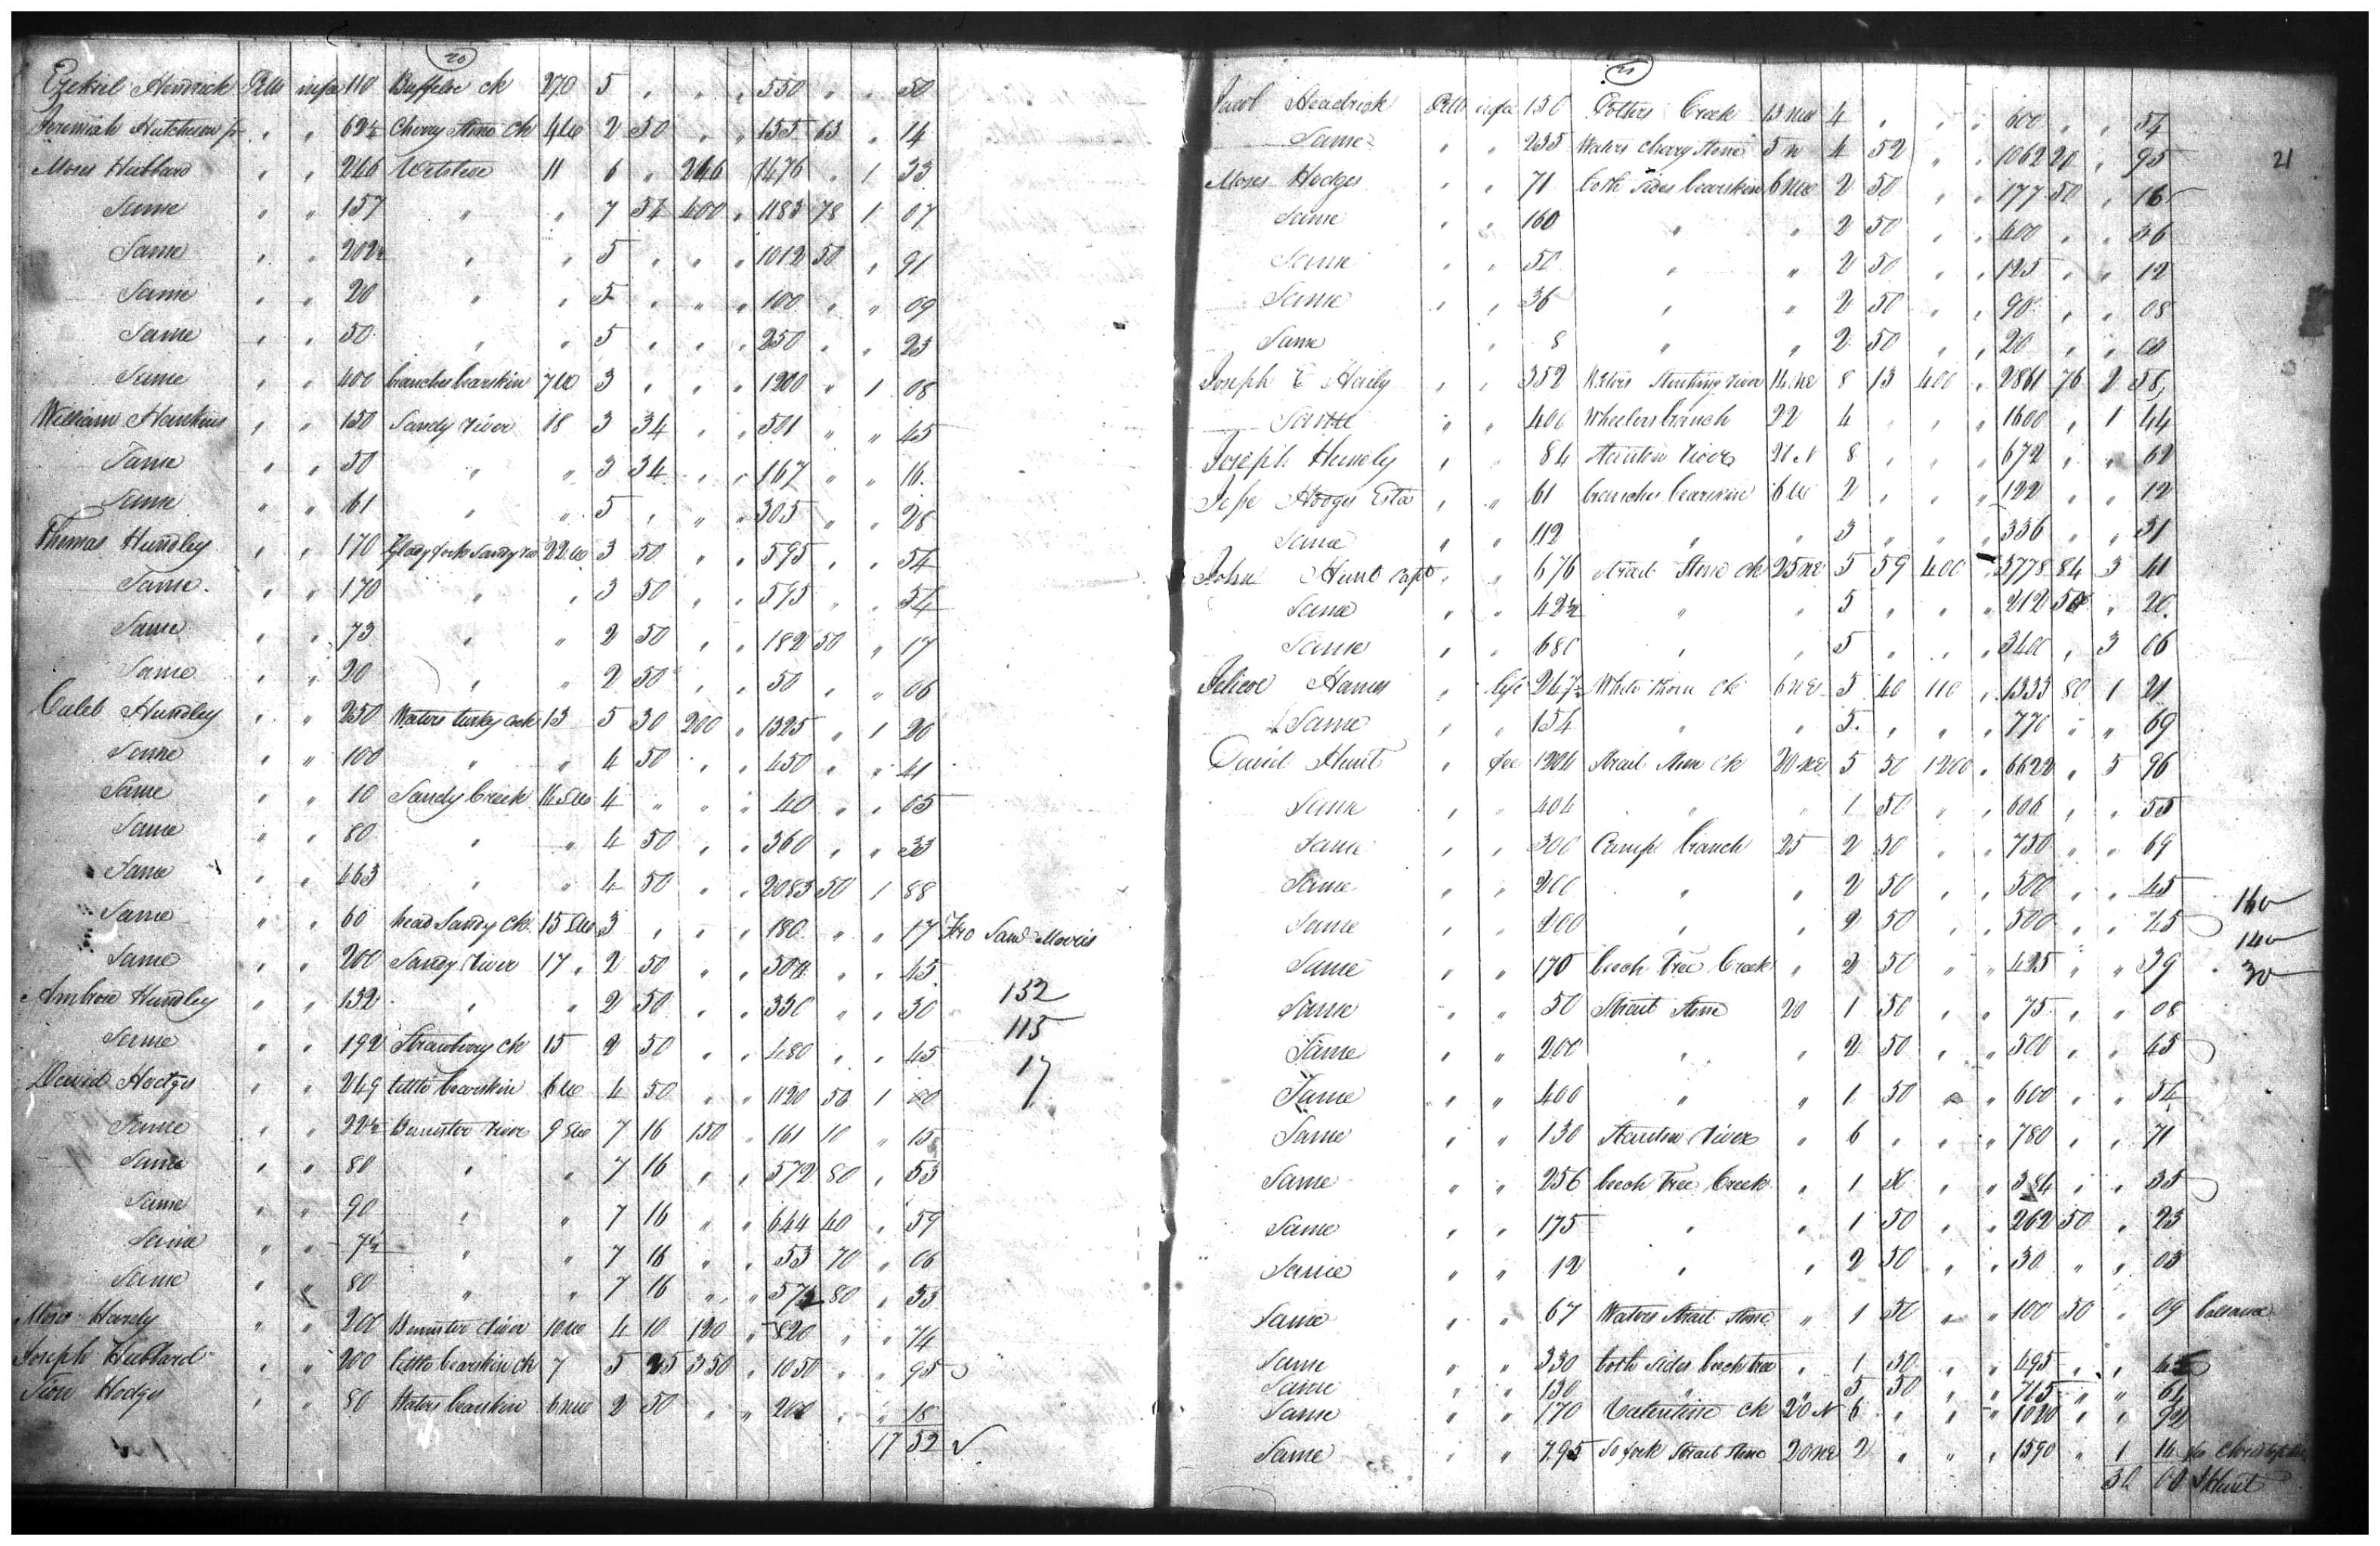 20
Ezekiel Hendrick Ptts in fee 110 Buffeloe ck 270 5 " " " 550 " " 50
Jeremiah Hutcherson jr " " 62½ Cherry Stone ck 4W 2 50 " " 155 63 " 14
Moses Hubbard " " 246 11 6 " 246 1476 " 1 33
Same " " 157 " " 7 54 400 " 1183 78 1 07
Same " " 202½ " " 5 " " " 1012 50 " 91
Same " " 20 " " 5 " " " 100 " " 09
Same " " 50 " " 5 " " " 250 " " 23
Same " " 400 branches bearskin 7W 3 " " " 1200 " 1 08
William Hankins " " 150 Sandy river 18 3 34 " " 501 " " 45
Same " " 50 " " 3 34 " " 167 " " 16
Same " " 61 " " 5 " " " 305 " " 28
Thomas Hundley " " 170 Glady fork Sandy riv 22W 3 50 " " 595 " " 54
Same " " 170 " " 3 50 " " 595 " " 54
Same " " 73 " " 2 50 " " 182 50 " 17
Same " " 20 " " 2 50 " " 50 " " 06
Caleb Hundley " " 250 Waters turky cock 13 5 30 200 " 1325 " 1 20
Same " " 100 " " 4 50 " " 450 " " 41
Same " " 10 Sandy Creek 16SW 4 " " " 40 " " 05
Same " " 80 " " 4 50 " " 360 " " 33
Same " " 463 " " 4 50 " " 2083 50 1 88
Same " " 60 head Sandy ck 15SW 3 " " " 180 " " 17 fro Saml Morris
Same " " 200 Sandy river 17 " 2 50 " " 500 " " 45
Ambrose Hundley " " 132 " " 2 50 " " 330 " " 30 132
Same " " 192 Strawberry ck 15 2 50 " " 480 " " 45 115
David Hodges " " 249 little bearskin 6W 4 50 " " 1120 50 1 00 17
Same " " 22½ Bannister river 9SW 7 16 150 " 161 10 " 15
Same " " 80 " " 7 16 " " 572 80 " 53
Same " " 90 " " 7 16 " " 644 40 " 59
Same " " 7½ " " 7 16 " " 53 70 " 06
Same " " 80 " " 7 16 " " 572 80 " 53
Moses Hardy " " 200 Bannister river 10W 4 10 120 " 820 " " 74
Joseph Hubbard " " 200 little bearskin ck 7 5 25 350 " 1050 " " 95
Hodges " " 80 Waters bearskin 6NW 2 50 " " 200 " " 18
17 52 ✓
21
21
Jacob Headrick Ptts in fee 150 Potters Creek 13NW 4 " " " 600 " " 54
Same " " 235 Waters cherry Stone 5N 4 52 " " 1062 20 " 95
Moses Hodges " " 71 both sides bearskin 6NW 2 50 " " 177 50 " 16
Same " " 160 " " 2 50 " " 400 " " 36
Same " " 50 " " 2 50 " " 125 " " 12
Same " " 36 " " 2 50 " " 90 " " 08
Same " 8 " " 2 50 " " 20 " "
Joseph E Haily " " 352 Waters Stinking river 14NE 8 13 400 " 2861 76 2 58
Same " " 400 Wheelers branch 22 4 " " " 1600 " 1 44
Joseph Hundly " " 84 Staunton river 21N 8 " " " 672 " " 62
Jesse Hodges Esta " " 61 branches bearskin 6W 2 " " " 122 " " 12
Same " " 112 " " 3 " " " 336 " " 31
John Hunt Capt " " 676 Strait Stone ck 25NE 5 59 400 " 3778 84 3 41
Same " " 42½ " " 5 " " " 212 50 " 20
Same " " 680 " " 5 " " " 3400 " 3 06
Hames " life 247 White thorn ck 6NE 5 40 110 " 1333 80 1 21
Same " " 154 " " 5 " " " 770 " " 69
David Hunt " fee 1204 Strait Stone ck 20NE 5 50 1200 " 6622 " 5 96
Same " " 404 " " 1 50 " " 606 " " 55
Same " " 300 Camp branch 25 2 50 " " 750 " " 69
Same " " 200 " " 2 50 " " 500 " " 45
Same " " 200 " " 2 50 " " 500 " " 45
Same " " 170 beech tree Creek " 2 50 " " 425 " " 39 30
Same " " 50 Strait Stone 20 1 50 " " 75 " " 08
Same " " 200 " " 2 50 " " 500 " " 45
Same " " 400 " " 1 50 " " 600 " " 54
Same " " 130 Staunton river " 6 " " " 780 " " 71
Same " " 256 beech tree Creek " 1 50 " " 384 " " 35
Same " " 175 " " 1 50 " " 262 50 " 23
Same " " 12 " " 2 50 " " 30 " " 03
Same " " 67 Waters Strait Stone " 1 50 " " 100 50 " 09
Same " " 330 both sides beech tree " 1 50 " " 495 " " 45
Same " " 130 " " 5 50 " " 715 " " 64
Same " " 170 ck 20N 6 " " " 1020 " " 92
Same " " 795 So fork Strait Stone 20NE 2 " " " 1590 " 1
Hunt